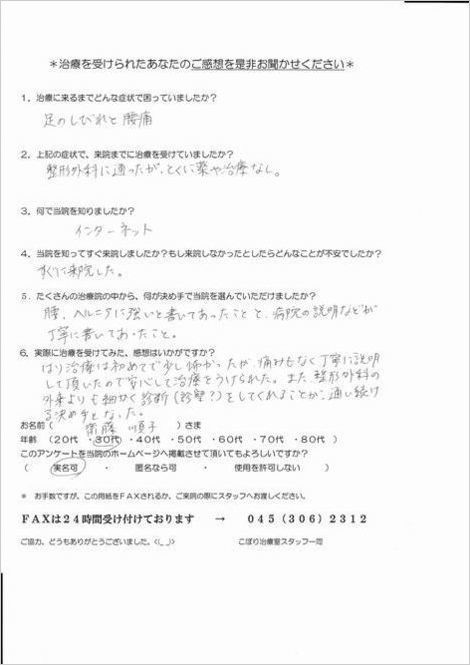 ＊治療を受けられたあなたのご感想を是非お聞かせください＊
1．治療に来るまでどんな症状で困っていましたか？
足のしびれと腰痛
2．上記の症状で、来院までに治療を受けていましたか？
整形外科に通ったが、とくに薬や治療なし。
3．何で当院を知りましたか？
インターネット
4．当院を知ってすぐ来院しましたか？もし来院しなかったとしたらどんなことが不安でしたか？
すぐに来院した。
5．たくさんの治療院の中から、何が決め手で当院を選んでいただけましたか？
腰、ヘルニアに強いと書いてあったことと、病院の説明などが
丁寧に書いてあったこと。
6．実際に治療を受けてみた、感想はいかがですか？
はり治療は初めてで少し怖かったが、痛みもなく丁寧に説明
して頂いたので安心して治療をうけられた。また整形外科の
外来よりも細かく診断（診望？）をしてくれることが、通い続け
る決め手となった。
お名前（ 衛藤 順子 ）さま
年齢 （20代 ・30代 ・40代 ・50代 ・60代 ・70代 ・80代）
このアンケートを当院のホームページへ掲載させて頂いてもよろしいですか？
（ 実名可 ・ 匿名なら可 ・ 使用を許可しない ）
＊ お手数ですが、この用紙をFAXされるか、ご来院の際にスタッフへお渡しください。
FAXは24時間受け付けております → 045（306）2312
ご協力、どうもありがとうございました。<(_ _)> こぼり治療室スタッフ一同